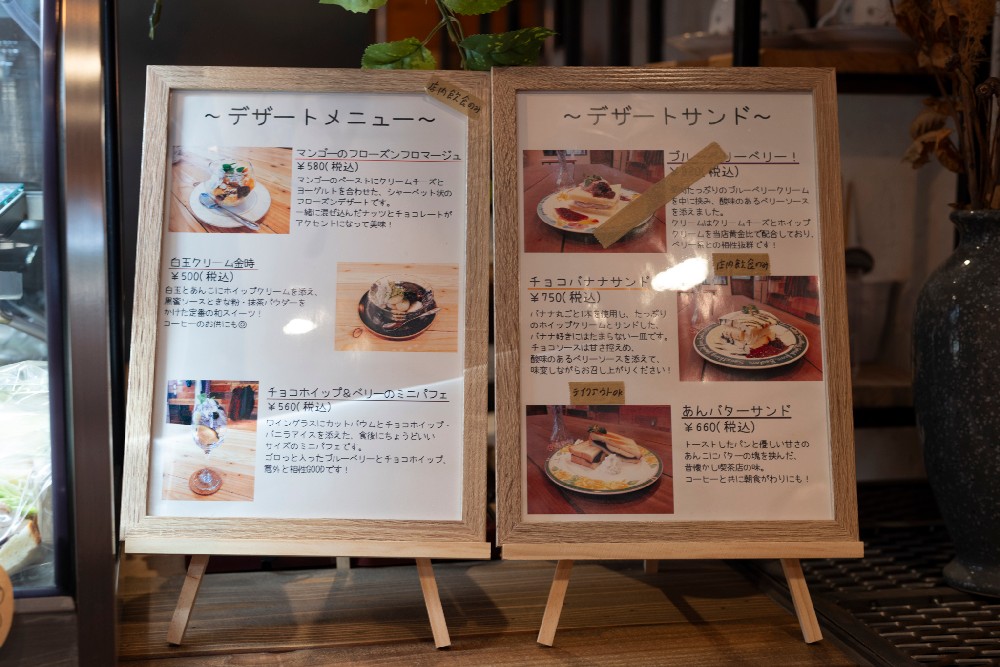 ～デザートメニュー～
店内飲食のみ
マンゴーのフローズンフロマージュ
￥580(税込)
マンゴーのペーストにクリームチーズと
ヨーグルトを合わせた、シャーベット状の
フローズンデザートです。
一緒に混ぜ込んだナッツとチョコレートが
アクセントになって美味！
白玉クリーム金時
￥500(税込)
白玉とあんこにホイップクリームを添え、
黒蜜ソースときな粉・抹茶パウダーを
かけた定番の和スイーツ！
コーヒーのお供にも◎
チョコホイップ＆ベリーのミニパフェ
￥560(税込)
ワイングラスにカットバウムとチョコホイップ・
バニラアイスを添えた、食後にちょうどいい
サイズのミニパフェです。
ゴロっと入ったブルーベリーとチョコホイップ、
意外と相性GOODです！
～デザートサンド～
(税込)
たっぷりのブルーベリークリーム
を中に挟み、酸味のあるベリーソース
を添えました。
クリームはクリームチーズとホイップ
クリームを当店黄金比で配合しており、
ベリー系との相性抜群です！
店内飲食のみ
チョコバナナサンド
￥750(税込)
バナナ丸ごと1本を使用し、たっぷり
のホイップクリームとサンドした、
バナナ好きにはたまらない一皿です。
チョコソースは甘さ控えめ、
酸味のあるベリーソースを添えて、
味変しながらお召し上がりください！
テイクアウトOK
あんバターサンド
￥660(税込)
トーストしたパンと優しい甘さの
あんこにバターの塊を挟んだ、
昔懐かし喫茶店の味。
コーヒーと共に朝食がわりにも！